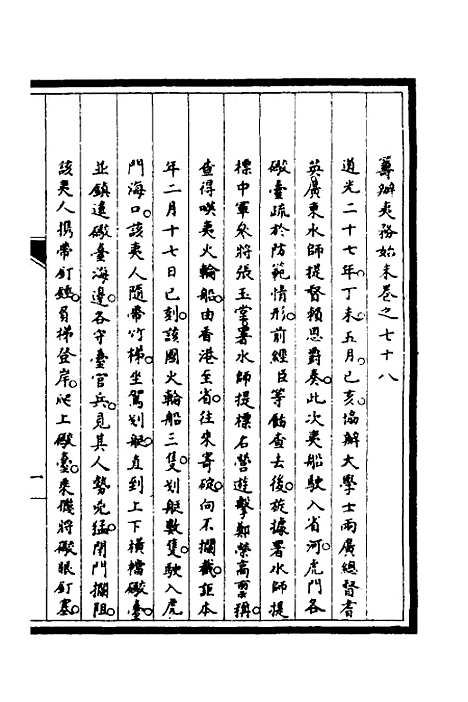 籌辦夷務始末卷之七十八
道光二十七年丁未五月己亥協辦大學士兩廣總督耆
英廣東水師提督賴恩爵奏此次夷船駛入省河虎門各
礮臺疏於防範情形前經臣等飭查去後旋據署水師提
標中軍叅將張玉堂署水師提標右營遊擊鄭榮高稟稱
查得㗸夷火輪船由香港至省往來寄碇向不攔截詎本
年二月十七日巳刻該國火輪船三隻划艇數隻駛入虎
門海口該夷人隨帶竹梯坐駕划艇直到上下橫檔礮臺
並鎮遠礮臺海邊各守臺官兵見其人勢兇猛閉門攔阻
該夷人攜帶釘鎚負梯登岸爬上礮臺乘機將礮眼釘塞
一